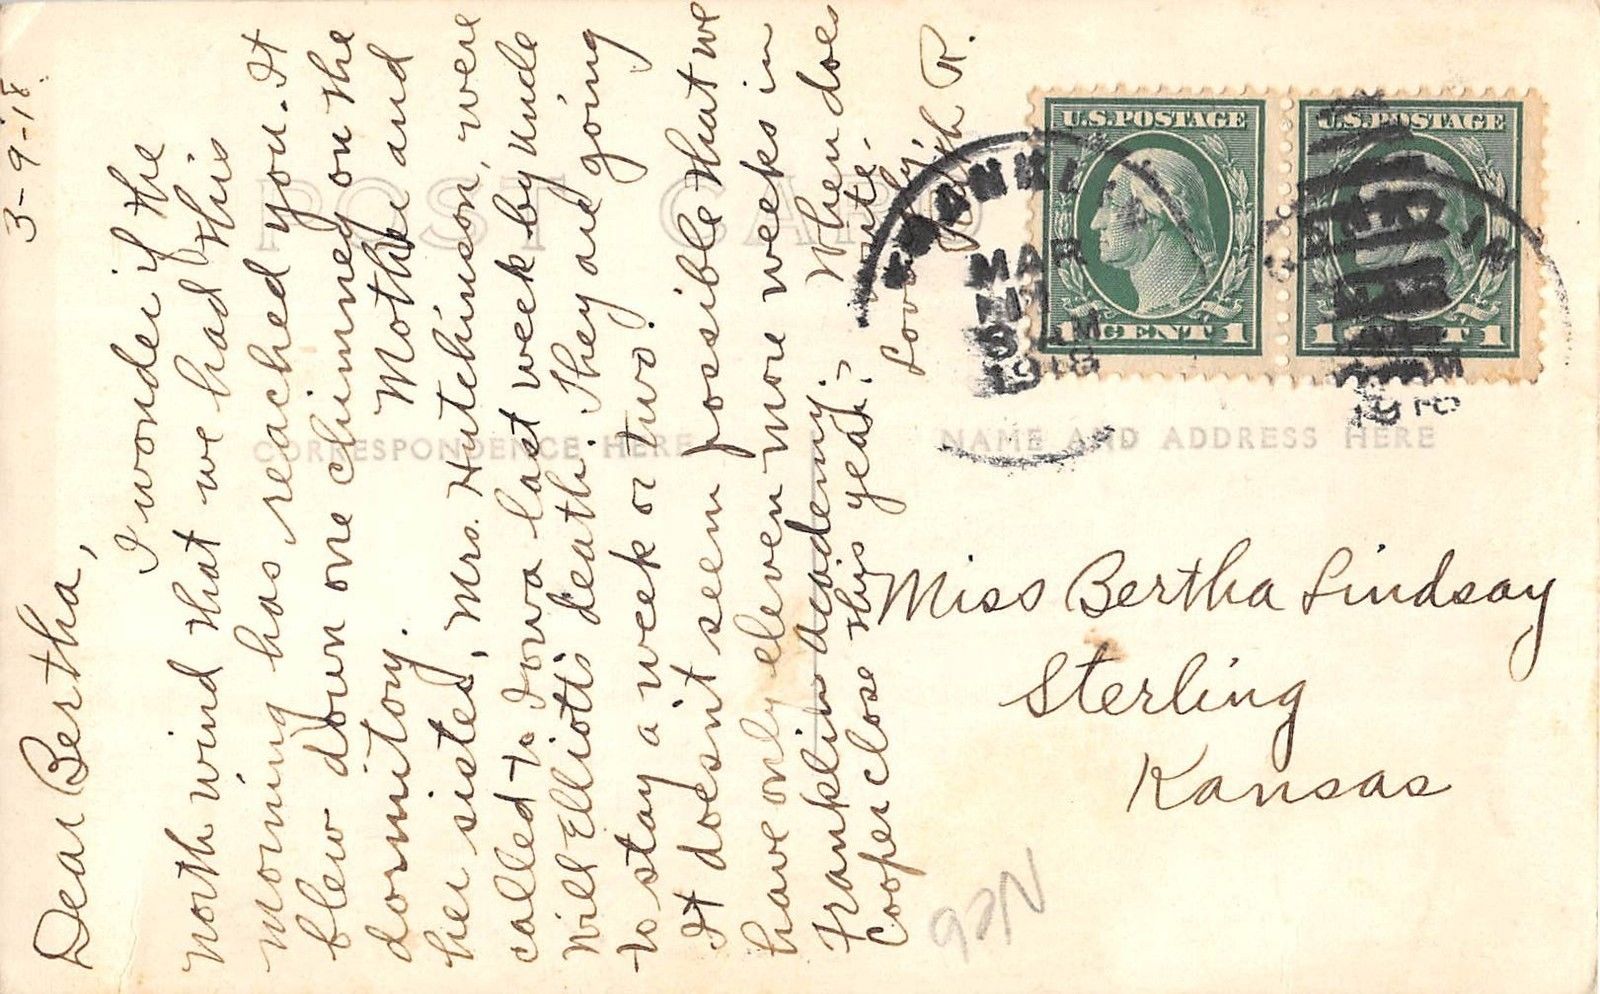 3-9-18.
Dear Bertha,
I wonder if the
north wind that we had this
morning has reached you. It
blew down one chimney on the
dormitory. Mother and
her sister, Mrs. Hutchinson, were
called to Iowa last week by Uncle
Will Elliott's death. They are going
to stay a week or two.
It doesn't seem possible that we
have only eleven more weeks in
Franklin academy. When does
Cooper close this year? write.
Lovingly,
R.
POST CARD
CORRESPONDENCE HERE
NAME AND ADDRESS HERE
U.S. POSTAGE
1 CENT 1
U.S. POSTAGE
1 CENT 1
FRANKLIN
MAR
1918
Miss Bertha Lindsay
Sterling
Kansas
92N